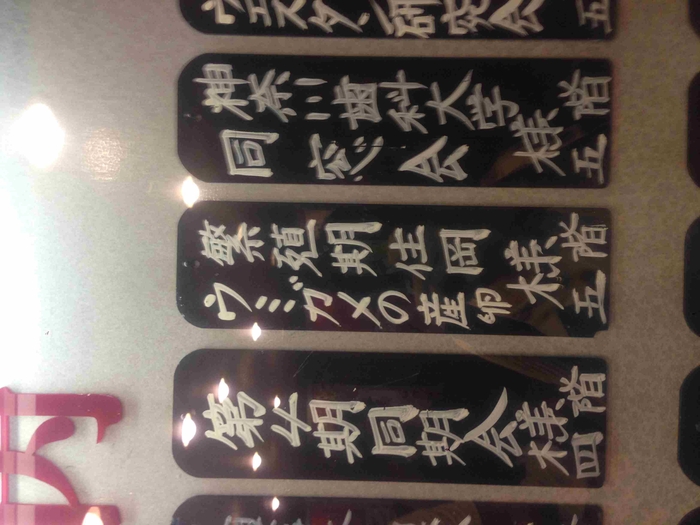 ウエスタン研究会
五
神奈川歯科大学
同窓会
様
五階
繁殖期佳岡
ウミガメの産卵
様
五階
第4期同期会様
四階
内